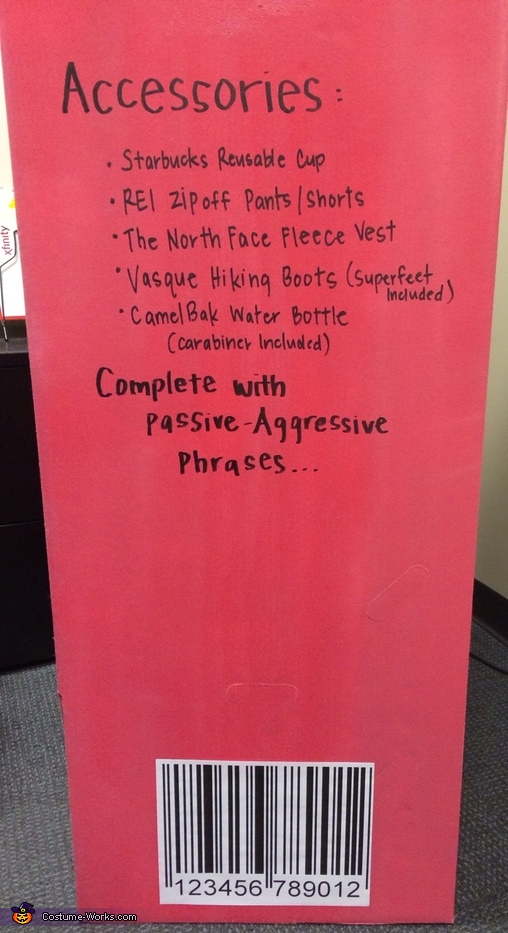 Accessories:
• Starbucks Reusable Cup
• REI Zip off Pants/Shorts
• The North Face Fleece Vest
• Vasque Hiking Boots (Superfeet
Included)
• CamelBak Water Bottle
(Carabiner Included)
Complete with
Passive-Aggressive
Phrases...
xfinity
123456 789012
Costume-Works.com